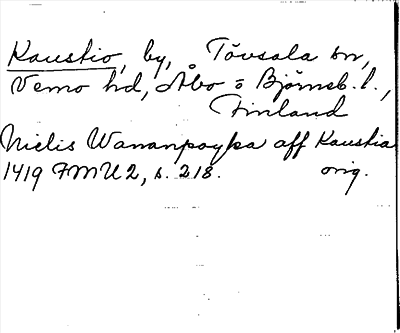 Kaustio, by, Tövsala sn,
Vemo hd, Åbo o Björneb. l.,
Finland
Nielis Wananpoyka aff Kaustia
1419 FMU 2, s. 218. orig.